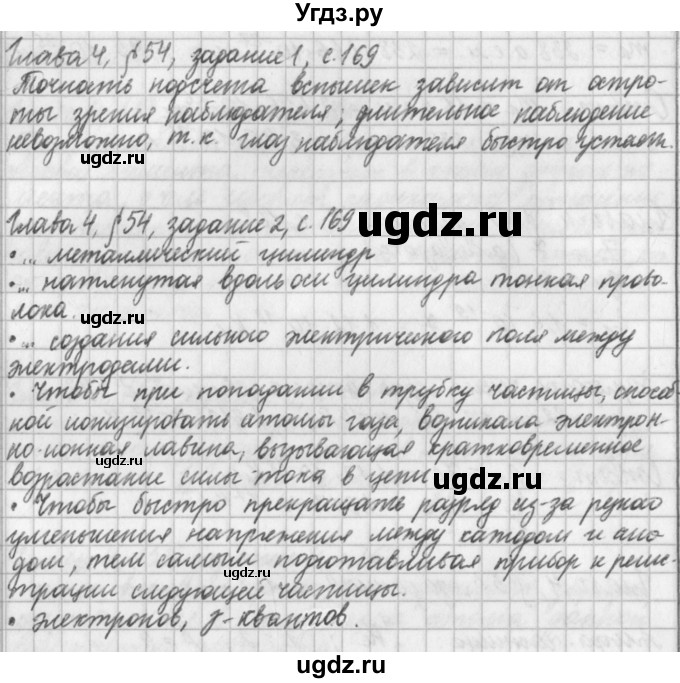 Угдз.ру
Глава 4, §54, задание 1, с. 169
Точность подсчета вспышек зависит от остро-
ты зрения наблюдателя; длительное наблюдение
невозможно, т.к. глаз наблюдателя быстро устает.
ugdz.ru
ugdz.ru
Глава 4, §54, задание 2, с. 169
• ... металлический цилиндр
• ... натянутая вдоль оси цилиндра тонкая прово-
лока.
ugdz.ru
• ... создания сильного электрического поля между
электродами.
• Чтобы при попадании в трубку частицы, способ-
ной ионизировать атомы газа, возникала электрон-
но-ионная лавина, вызывающая кратковременное
возрастание силы тока в цепи
ugdz.ru
ugdz.ru
• Чтобы быстро прекращать разряд из-за резкого
уменьшения напряжения между катодом и ано-
дом, тем самым подготавливая прибор к регис-
ugdz.ru
трации следующей частицы.
• электронов, γ-квантов.
ugdz.ru